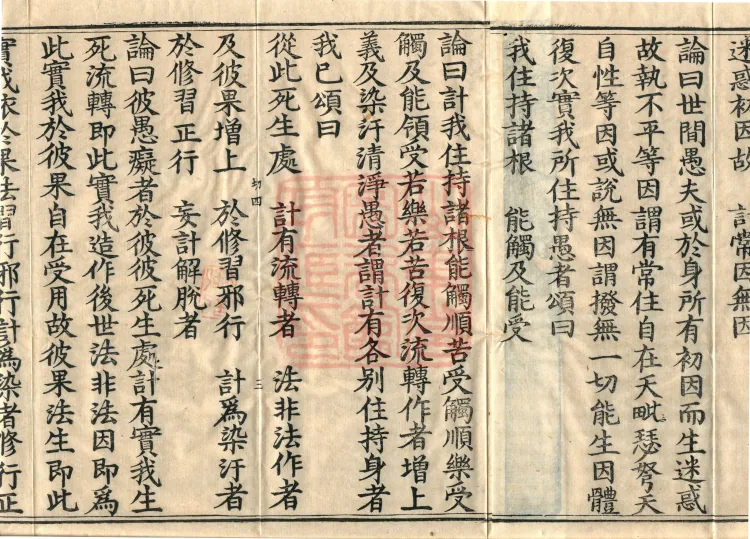 迷惑初因故　計常因無因
論曰世間愚夫或於身所有初因而生迷惑
故執不平等因謂有常住自在天毗瑟弩天
自性等因或說無因謂撥無一切能生因體
復次實我所住持愚者頌曰
我住持諸根　能觸及能受
論曰計我住持諸根能觸順苦受觸順樂受
觸及能領受若樂若苦復次流轉作者增上
義及染汙清淨愚者謂計有各別住持身者
我已頌曰
從此死生處　計有流轉者　法非法作者
切四
三
及彼果增上　於修習邪行　計爲染汙者
於修習正行　妄計解脫者
論曰彼愚癡者於彼彼死生處計有實我生
死流轉即此實我造作後世法非法因即爲
此實我於彼果自在受用故彼果法生即此
實我依於果法習行邪行計爲染者修行正